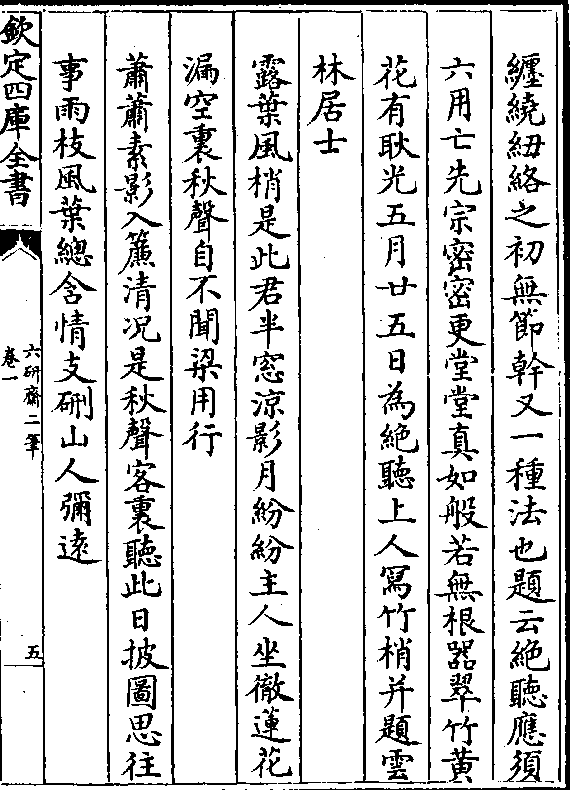 纒繞紐絡之初無節幹又一種法也題云絶聽應須
六用亡先宗密密更堂堂真如般若無根器翠竹黄
花有耿光五月廿五日為絶聽上人寫竹梢并題雲
林居士
露葉風梢是此君半窓涼影月紛紛主人坐徹蓮花
漏空裏秋聲自不聞梁用行
蕭蕭素影入簾清况是秋聲客裏聽此日披圖思往
事雨枝風葉總含情支硎山人彌逺
欽定四庫全書
六研齋二筆
卷一
五